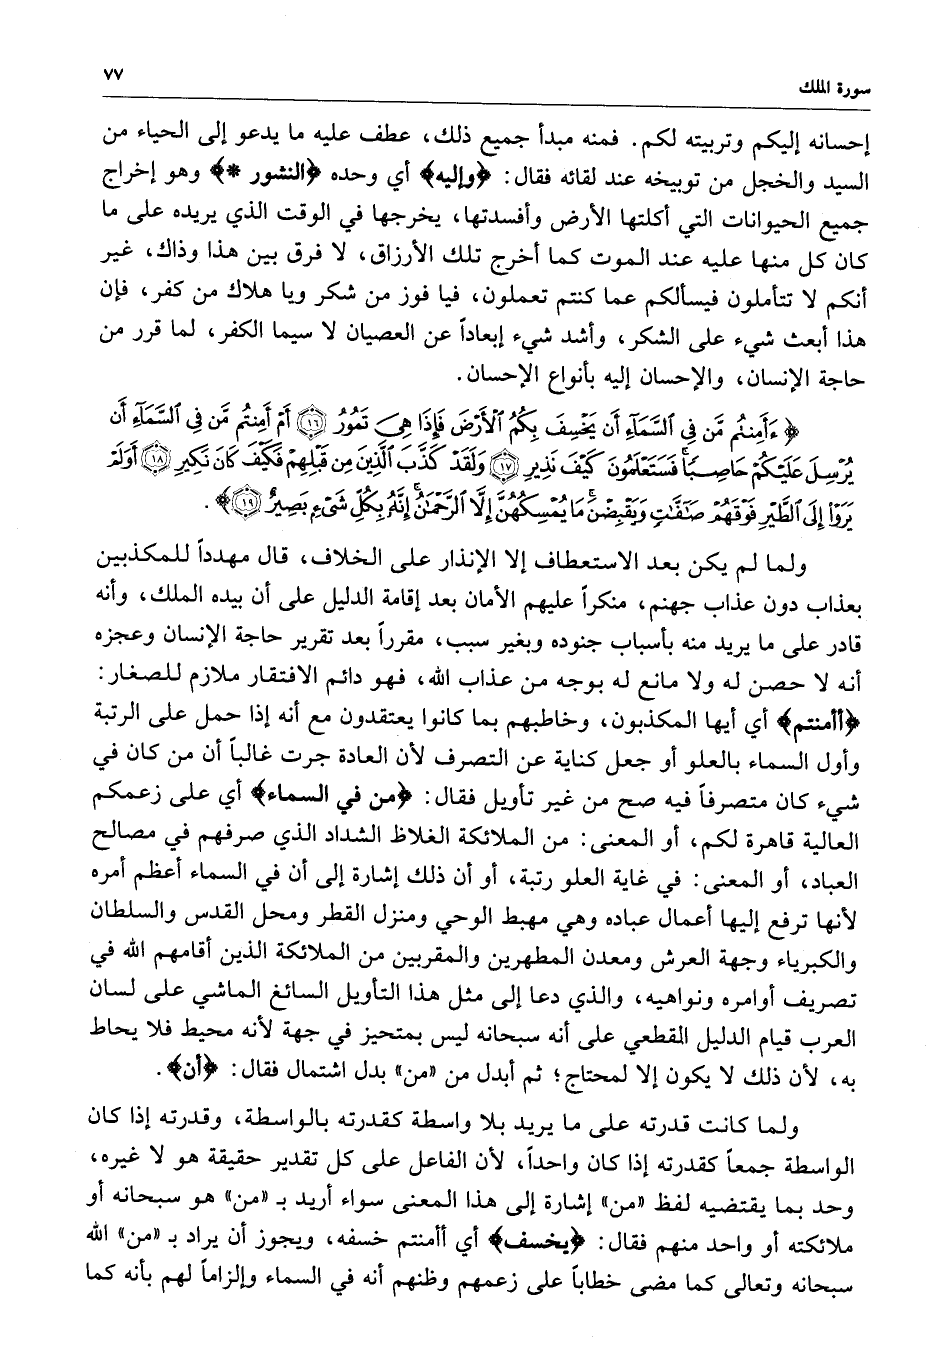 ٧٧
سورة الملك
إحسانه إليكم وتربيته لكم. فمنه مبدأ جميع ذلك، عطف عليه ما يدعو إلى الحياء من
السيد والخجل من توبيخه عند لقائه فقال: ﴿وإليه﴾ أي وحده ﴿النشور *﴾ وهو إخراج
جميع الحيوانات التي أكلتها الأرض وأفسدتها، يخرجها في الوقت الذي يريده على ما
كان كل منها عليه عند الموت كما أخرج تلك الأرزاق، لا فرق بين هذا وذاك، غير
أنكم لا تتأملون فيسألكم عما كنتم تعملون، فيا فوز من شكر ويا هلاك من كفر، فإن
هذا أبعث شيء على الشكر، وأشد شيء إبعاداً عن العصيان لا سيما الكفر، لما قرر من
حاجة الإنسان، والإحسان إليه بأنواع الإحسان.
﴿ءَأَمِنتُم مَّن فِى ٱلسَّمَآءِ أَن يَخْسِفَ بِكُمُ ٱلْأَرْضَ فَإِذَا هِىَ تَمُورُ ۝١٦ أَمْ أَمِنتُم مَّن فِى ٱلسَّمَآءِ أَن
يُرْسِلَ عَلَيْكُمْ حَاصِبًا ۖ فَسَتَعْلَمُونَ كَيْفَ نَذِيرِ ۝١٧ وَلَقَدْ كَذَّبَ ٱلَّذِينَ مِن قَبْلِهِمْ فَكَيْفَ كَانَ نَكِيرِ ۝١٨ أَوَلَمْ
يَرَوْا۟ إِلَى ٱلطَّيْرِ فَوْقَهُمْ صَٰٓفَّٰتٍ وَيَقْبِضْنَ ۚ مَا يُمْسِكُهُنَّ إِلَّا ٱلرَّحْمَٰنُ ۚ إِنَّهُۥ بِكُلِّ شَىْءٍۭ بَصِيرٌ ۝١٩﴾.
ولما لم يكن بعد الاستعطاف إلا الإنذار على الخلاف، قال مهدداً للمكذبين
بعذاب دون عذاب جهنم، منكراً عليهم الأمان بعد إقامة الدليل على أن بيده الملك، وأنه
قادر على ما يريد منه بأسباب جنوده وبغير سبب، مقرراً بعد تقرير حاجة الإنسان وعجزه
أنه لا حصن له ولا مانع له بوجه من عذاب الله، فهو دائم الافتقار ملازم للصغار:
﴿أأمنتم﴾ أي أيها المكذبون، وخاطبهم بما كانوا يعتقدون مع أنه إذا حمل على الرتبة
وأول السماء بالعلو أو جعل كناية عن التصرف لأن العادة جرت غالباً أن من كان في
شيء كان متصرفاً فيه صح من غير تأويل فقال: ﴿من في السماء﴾ أي على زعمكم
العالية قاهرة لكم، أو المعنى: من الملائكة الغلاظ الشداد الذي صرفهم في مصالح
العباد، أو المعنى: في غاية العلو رتبة، أو أن ذلك إشارة إلى أن في السماء أعظم أمره
لأنها ترفع إليها أعمال عباده وهي مهبط الوحي ومنزل القطر ومحل القدس والسلطان
والكبرياء وجهة العرش ومعدن المطهرين والمقربين من الملائكة الذين أقامهم الله في
تصريف أوامره ونواهيه، والذي دعا إلى مثل هذا التأويل السائغ الماشي على لسان
العرب قيام الدليل القطعي على أنه سبحانه ليس بمتحيز في جهة لأنه محيط فلا يحاط
به، لأن ذلك لا يكون إلا لمحتاج؛ ثم أبدل من «من» بدل اشتمال فقال: ﴿أن﴾.
ولما كانت قدرته على ما يريد بلا واسطة كقدرته بالواسطة، وقدرته إذا كان
الواسطة جمعاً كقدرته إذا كان واحداً، لأن الفاعل على كل تقدير حقيقة هو لا غيره،
وحد بما يقتضيه لفظ «من» إشارة إلى هذا المعنى سواء أريد بـ «من» هو سبحانه أو
ملائكته أو واحد منهم فقال: ﴿يخسف﴾ أي أأمنتم خسفه، ويجوز أن يراد بـ «من» الله
سبحانه وتعالى كما مضى خطاباً على زعمهم وظنهم أنه في السماء وإلزاماً لهم بأنه كما